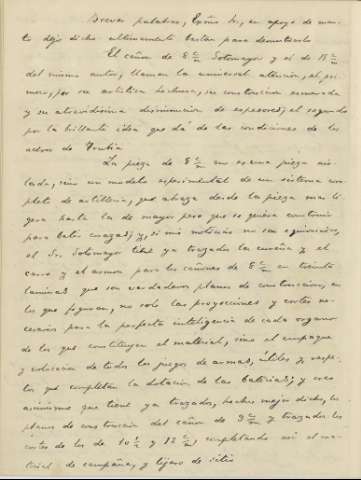 Breves palabras, Excmo Sr., en apoyo de cuan-
to dejo dicho ultimamente bastan para demostrarlo
El cañon de 8 c/m Sotomayor y el de 15 c/m
del mismo autor, llaman la universal atencion, el pri-
mero, por su artistica hechura, su construccion esmerada
y su atrevidisima disminucion de espesores; el segundo
por la brillante idea que dá de las condiciones de los
aceros de Trubia
La pieza de 8 c/m no es una pieza ais-
lada, sino un modelo esperimental de un sistema com-
pleto de artilleria, que abraza desde la pieza mas li-
gera hasta la de mayor peso que se quiera construir
para batir corazas; y, si mis noticias no son equivocadas,
el Sr. Sotomayor tiene ya trazados la cureña y el
carro y el armon para los cañones de 8 c/m en treinta
laminas que son verdaderos planos de construccion, en
los que figuran, no solo las proyecciones y cortes ne-
cesarios para la perfecta inteligencia de cada organo
de los que constituyen el material, sino el empaque
y colocacion de todos los juegos de armas, útiles y respe-
tos que completan la dotacion de las baterias; y creo
asimismo que tiene ya trazados, hechos mejor dicho, los
planos de construccion del cañon de 9 c/m y trazados los
cortes de los de 10 c/m y 12 c/m, completando asi el ma-
terial de campaña, y ligero de sitio